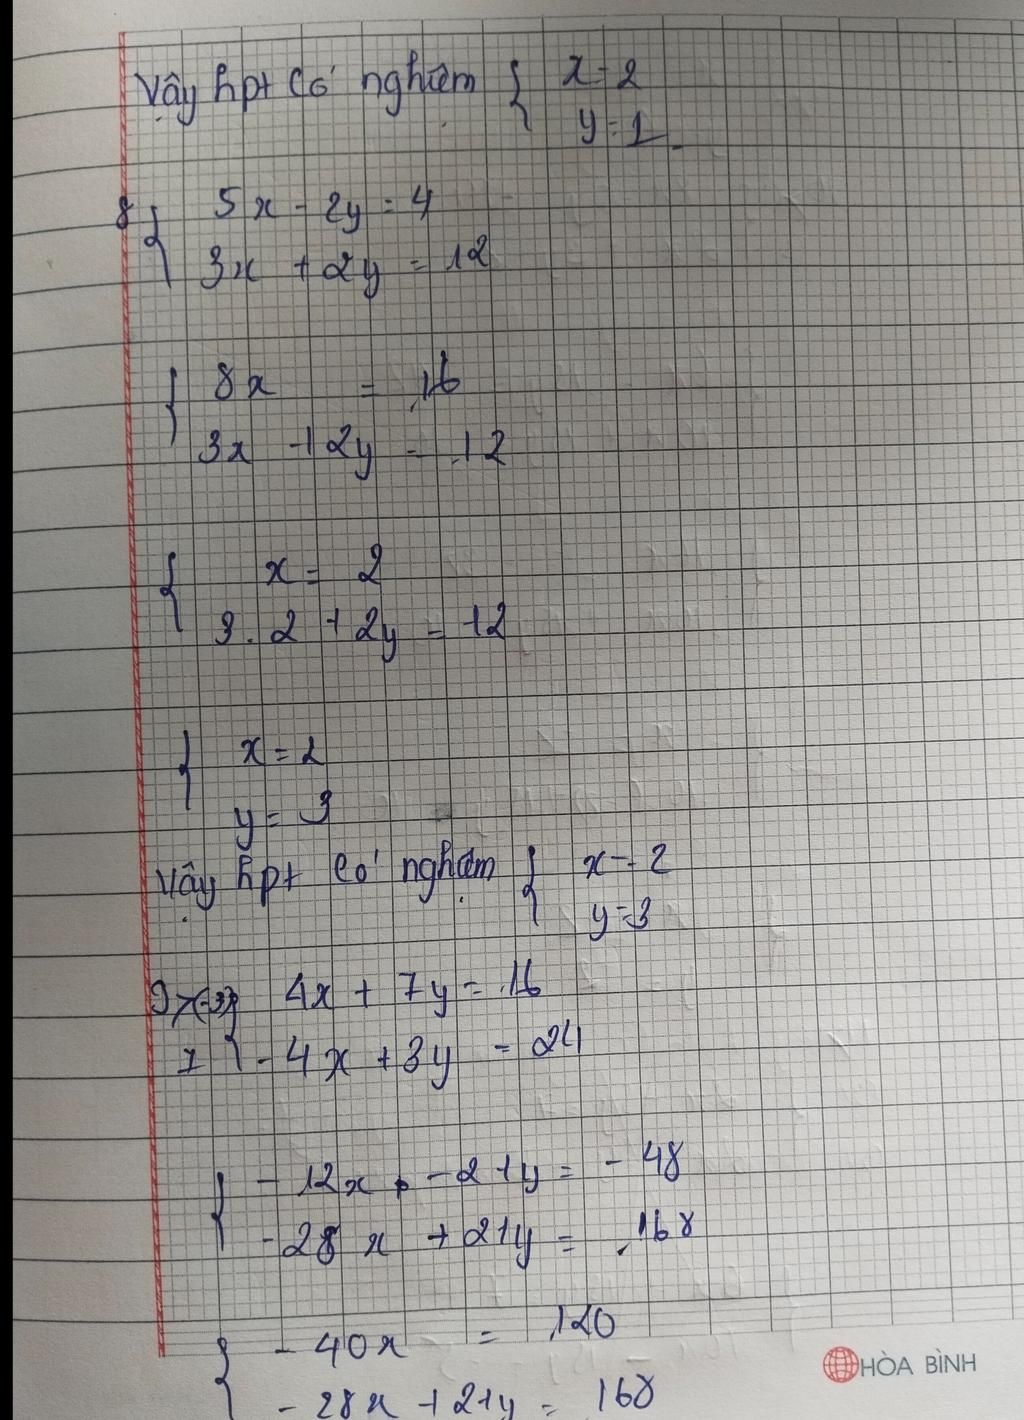 Vậy hpt có nghiệm { x = 2
y = 1
8 { 5x - 2y = 4
3x + 2y = 12
{ 8x = 16
3x + 2y = 12
{ x = 2
3.2 + 2y = 12
{ x = 2
y = 3
Vậy hpt có nghiệm { x = 2
y = 3
9 x(-3) { 4x + 7y = 16
7 - 4x + 3y = 24
{ - 12x - 21y = - 48
- 28x + 21y = 168
{ - 40x = 120
- 28x + 21y = 168
HÒA BÌNH